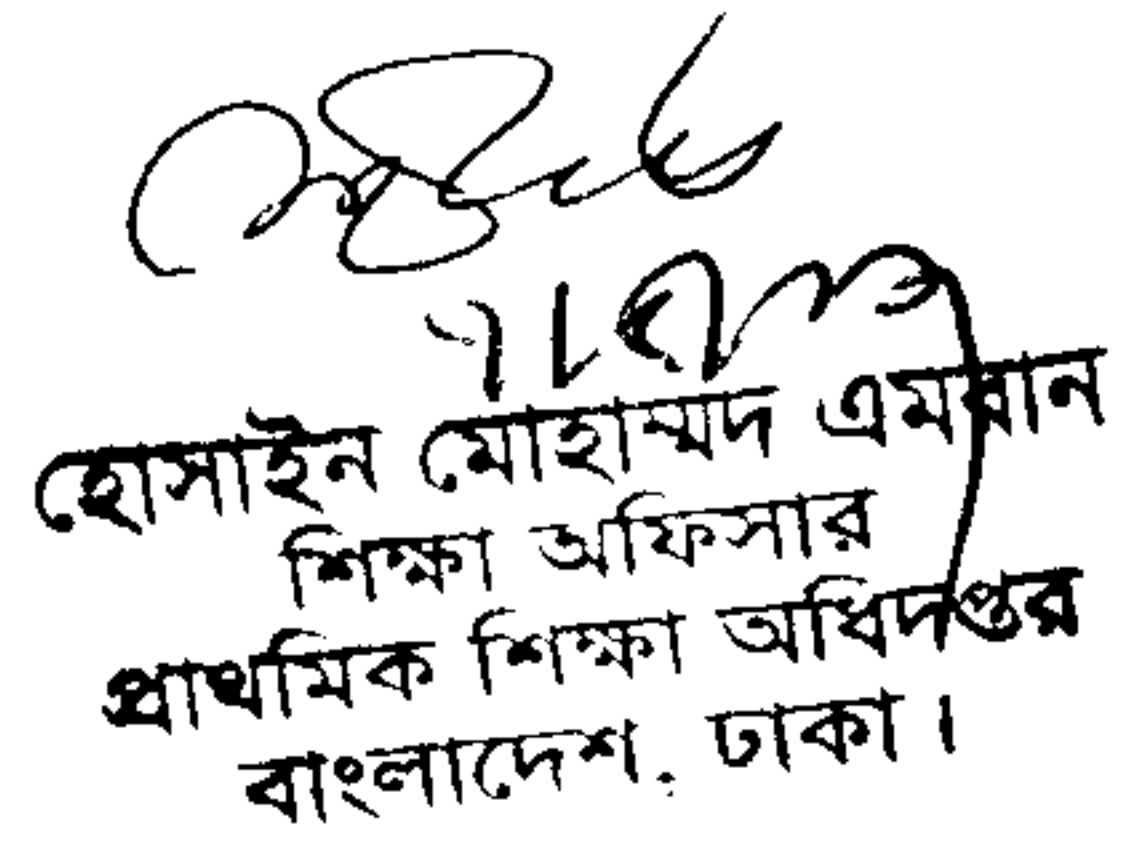 হোসাইন মোহাম্মদ এমরান
শিক্ষা অফিসার
প্রাথমিক শিক্ষা অধিদপ্তর
বাংলাদেশ, ঢাকা।